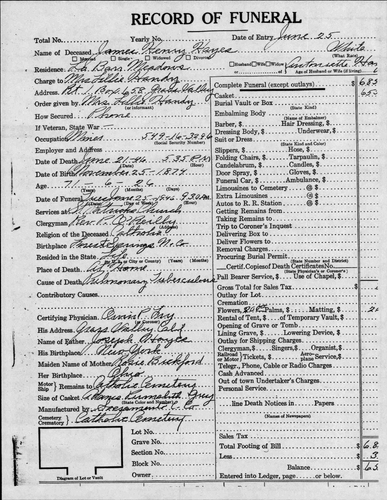 RECORD OF FUNERAL
Total No. Yearly No. Date of Entry June 25
Name of Deceased James Henry Hayes White
Married Single Widowed Divorced (What Race)
Residence La Barr Meadows Husband Wife Widow or
Age of Husband or Wife (if living)
Charge to Mrs Lillis Handy
Address Rt. 1 Box 658 Grass Valley
Order given by Mrs Lillis Handy
How Secured Phone
If Veteran, State War
Occupation Miner 549-16-3296
(Social Security Number)
Employer and Address
Date of Death June 21-46 5:35 P.M.
Date of Birth November 25-1874
Age 71 - 6 - 26
Date of Funeral 9:30 AM
Services at St. Patricks Church
Clergyman Rev.
Religion of the Deceased Catholic
Birthplace Forest Springs N. Co.
Resided in the State Life
(City or County) (Years, Months, Days)
Place of Death At Home
Cause of Death Pulmonary Tuberculosis
Contributory Causes
Certifying Physician
His Address Grass Valley Calif
Name of Father Joseph Hayes
His Birthplace New York
Maiden Name of Mother Bickford
Her Birthplace Ohio
Motor Ship Remains to Catholic Cemetery
Size of Casket Grey
(State Color and Number)
Manufactured by Sacramento C. Co
Cemetery Crematory Catholic Cemetery
Lot No.
Grave No.
Section No.
Block No.
Owner
Diagram of Lot or Vault
Complete Funeral (except outlays) $
Casket
Burial Vault or Box
(State Kind)
Embalming Body
(Name of Embalmer)
Barber, $ Hair Dressing, $
Dressing Body, $ Underwear, $
Suit or Dress
(State Kind and Color)
Slippers, $ Hose, $
Folding Chairs, $ Tarpaulin, $
Candelabrum, $ Candles, $
Door Spray, $ Gloves, $
Funeral Car, $ Ambulance, $
Limousines to Cemetery @ $
Extra Limousines @ $
Autos to R. R. Station @ $
Getting Remains from
Taking Remains to
Trip to Coroner's Inquest
Delivering Box to
Deliver Flowers to
Removal Charges
Procuring Burial Permit
(State Number and District)
Certif. Copies of Death Certificates No.
(State Physician's or Coroner's)
Pall Bearer Service, $ Use of Chapel, $
Gross Total for Sales Tax $
Outlay for Lot
Cremation
Flowers, $ Palms, $ Matting, $
Rental of Tent, $ of Temporary Vault, $
Opening of Grave or Tomb
Lining Grave, $ Lowering Device, $
Outlay for Shipping Charges
Clergyman, $ Singers, $ Organist, $
Railroad Motor Tickets, $ Aeroplane Service, $
Telegr., Phone, Cable or Radio Charges
Cash Advanced
Out of town Undertaker's Charges
Personal Service
line Death Notices in Papers
(Names of Newspapers)
Sales Tax $
Total Footing of Bill $
Less $
Balance $
Entered into Ledger, page or below